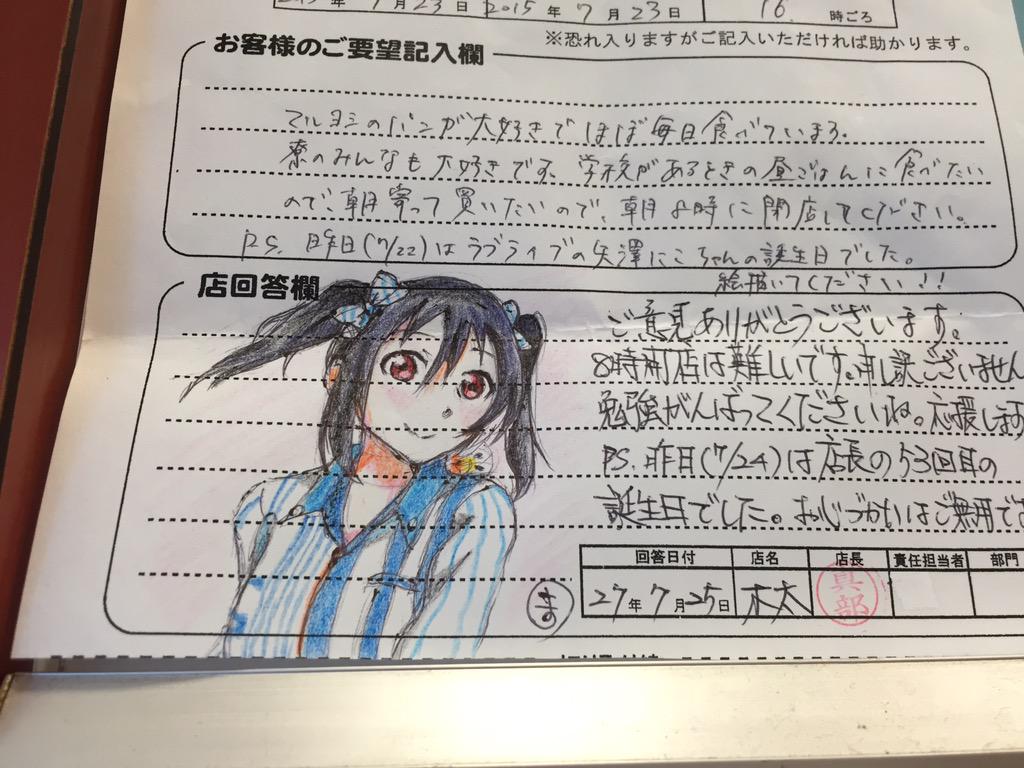 年7月23日 2015年7月23日 16 時ごろ
※恐れ入りますがご記入いただければ助かります。
お客様のご要望記入欄
マルヨシのパンが大好きでほぼ毎日食べています。
寮のみんなも大好きです。学校があるときの昼ごはんに食べたい
ので、朝寄って買いたいので、朝8時に開店してください。
P.S. 昨日(7/22)はラブライブの矢澤にこちゃんの誕生日でした。
絵描いてください!!
店回答欄
ご意見ありがとうございます。
8時開店は難しいです。申し訳ございません
勉強がんばってくださいね。応援します
PS.昨日(7/24)は店長の53回目の
誕生日でした。おじづかいはご無用です
回答日付 店名 店長 責任担当者 部門
27年7月25日 木太 真部